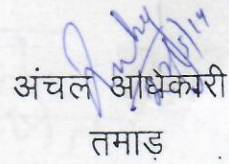 अंचल अधिकारी
तमाड़